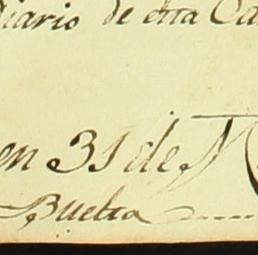 diario de esta Ca
en 31 de M
Buelta